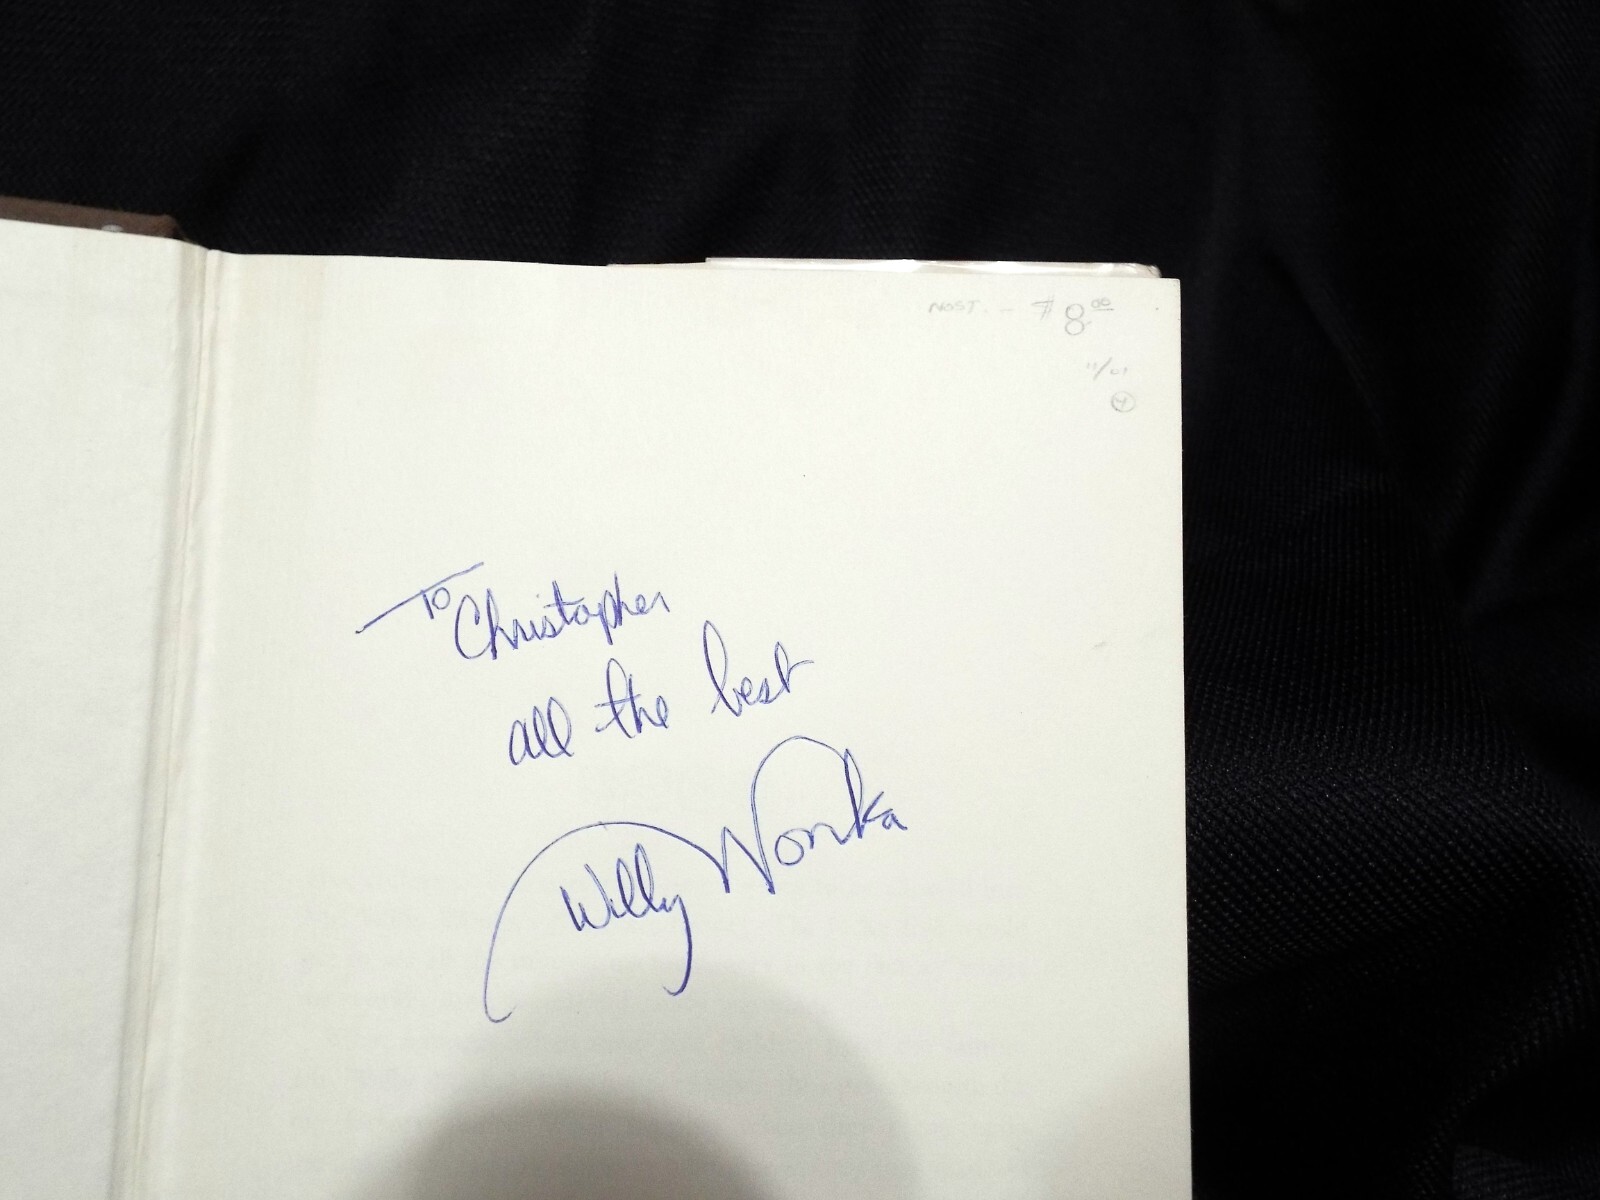 NOST. - $8.00
11/01
4
To Christopher
all the best
Willy Wonka